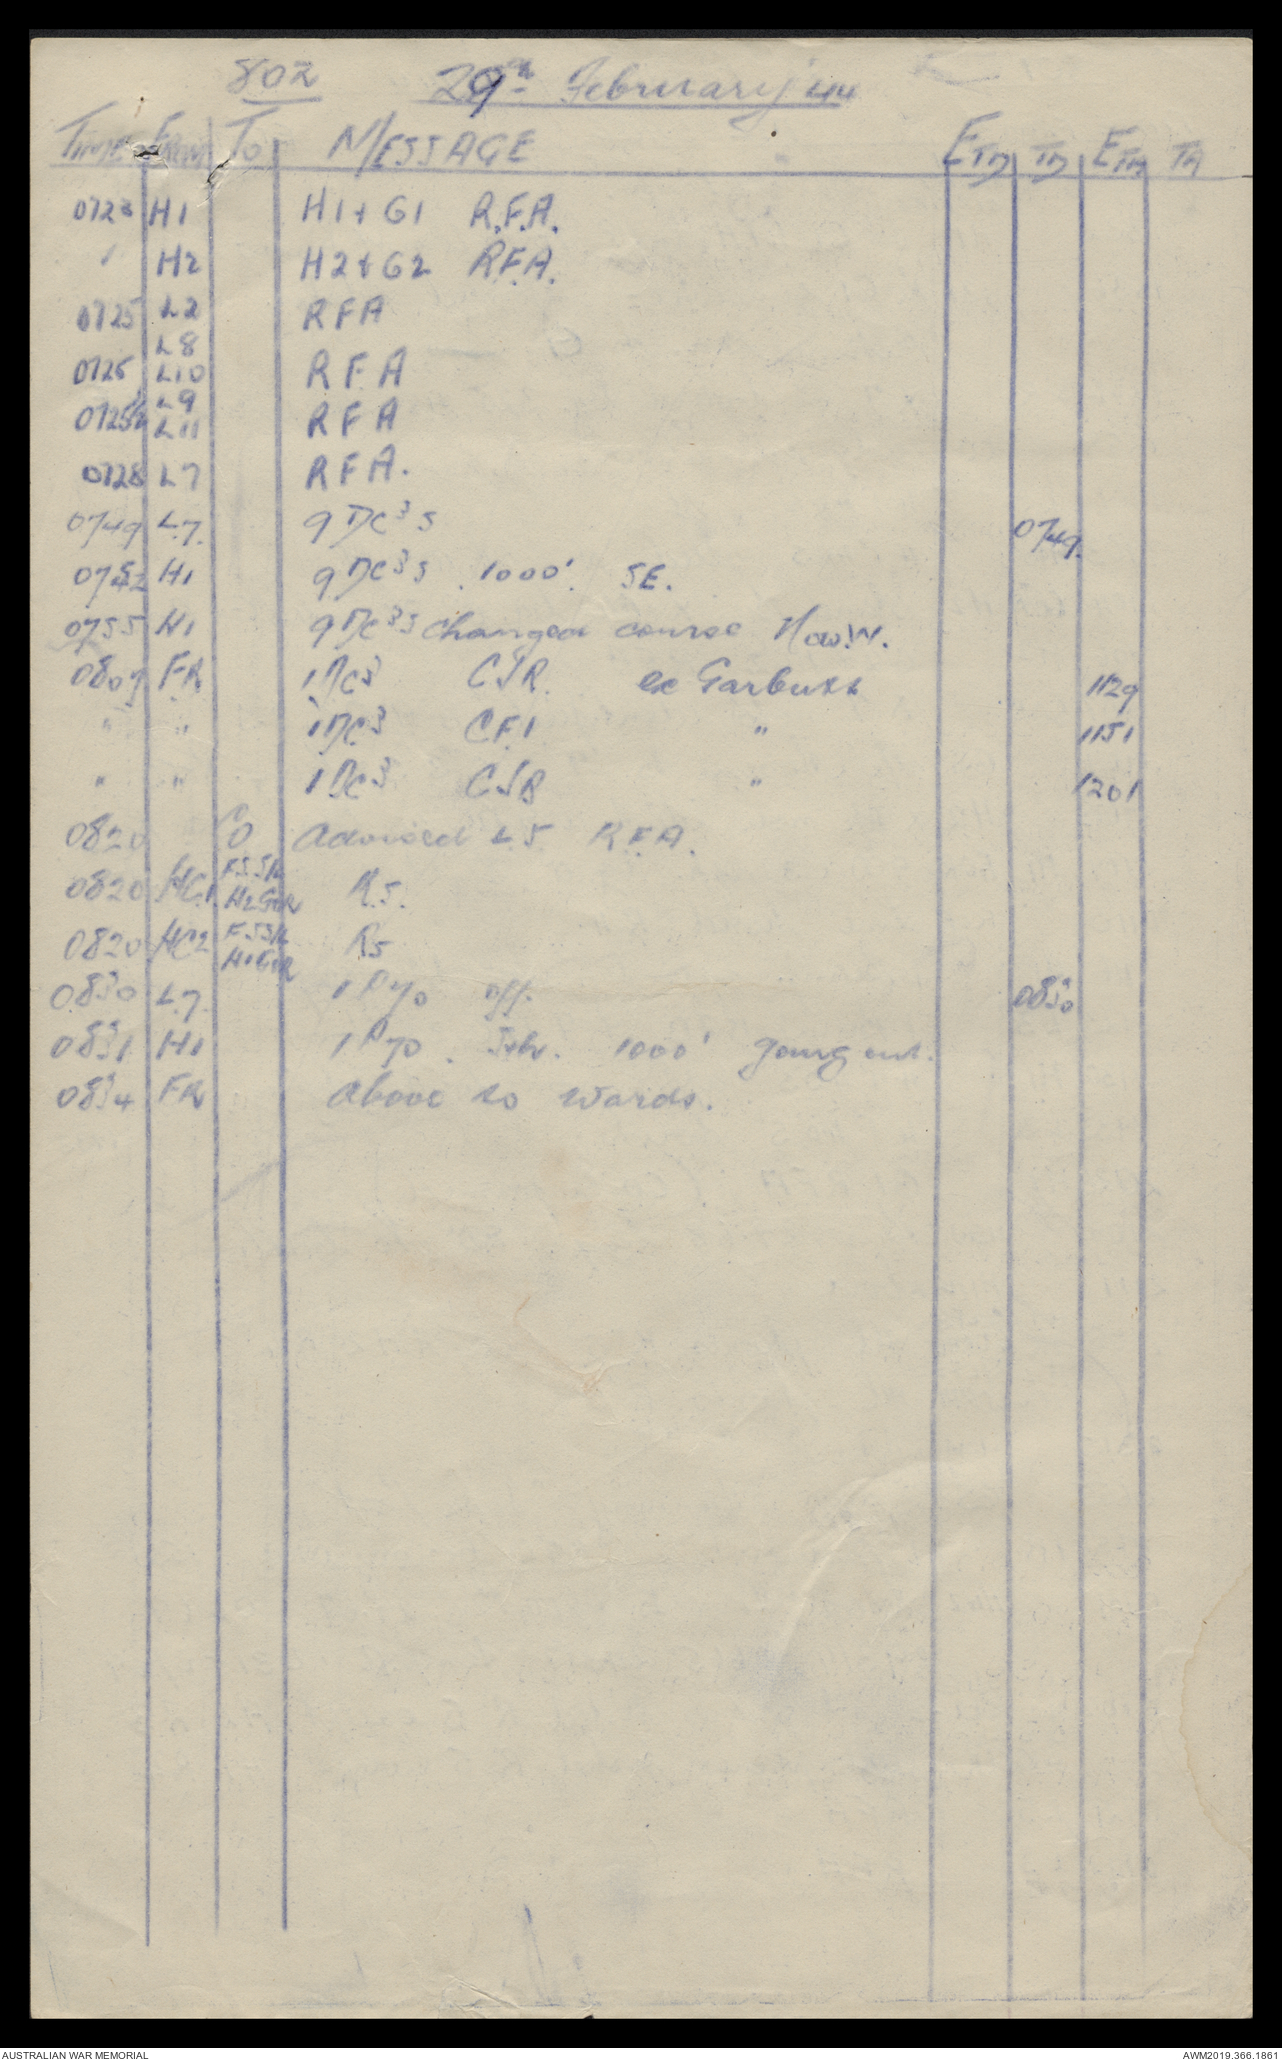 802 29th February '44
TIME FROM TO MESSAGE ETD TD ETA TA
0723 H1 H1 + G1 R.F.A.
" H2 H2 + G2 R.F.A.
0725 L2 RFA
L8
0725 L10 RFA
L9
0725½ L11 RFA
0728 L7 RFA.
0749 L.7. 9 DC3s 0749.
0752 H1 9 DC3s. 1000'. SE.
0755 H1 9 DC3s changed course Now W.
0807 FR. 1 DC3 CJR. ex Garbutt 1129
" " 1 DC3 CF1 " 1151
" " 1 DC3 CJB " 1201
0820 CO Advised L5 R.F.A.
FSSR
0820 HC.1 H2GOR R5.
FSSR
0820 HC2 H1GOR R5
0830 L.7. 1 P40 off. 0830
0831 H1 1 P40. Sth. 1000' going out.
0834 FR Above to Wards.
AUSTRALIAN WAR MEMORIAL AWM2019.366.1861